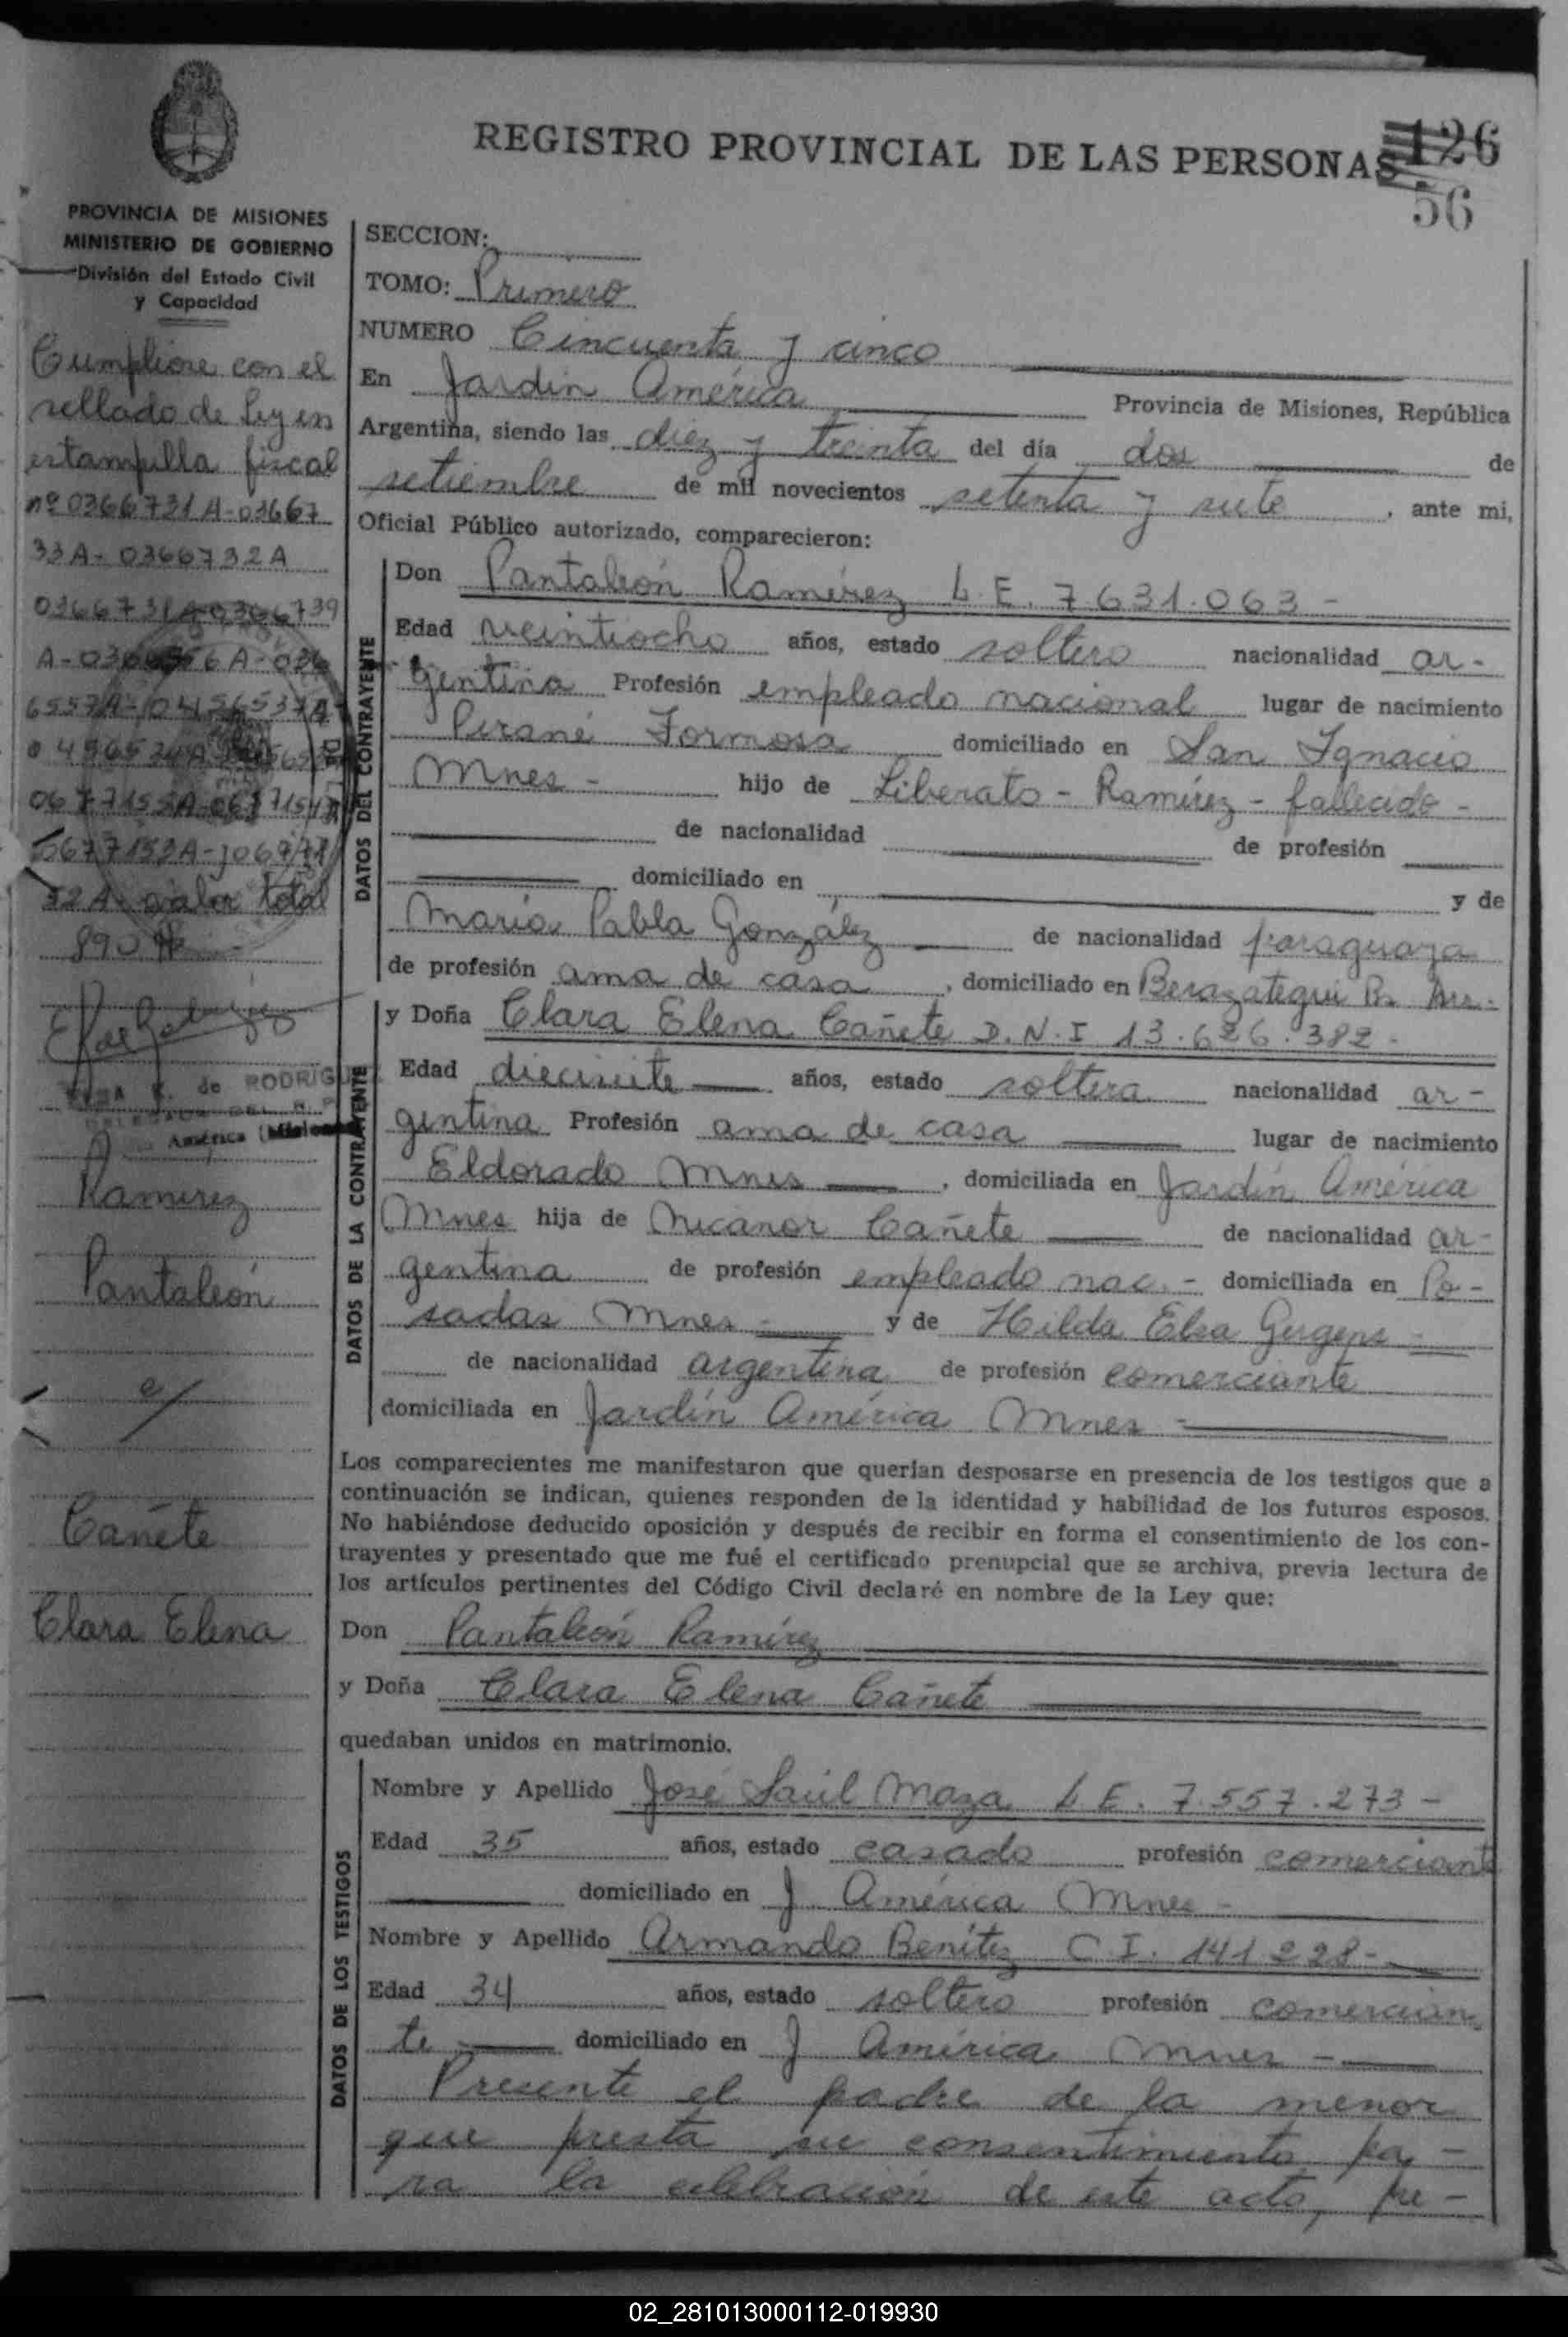 REGISTRO PROVINCIAL DE LAS PERSONAS
126
56
PROVINCIA DE MISIONES
MINISTERIO DE GOBIERNO
División del Estado Civil
y Capacidad
Cumplióse con el
sellado de Ley en
estampilla fiscal
nº 0366731A-03667
33A-0366732A
valor total
890
de RODRIGU
América
Ramirez
Pantaleón
c/
Cañete
Clara Elena
SECCION:
TOMO: Primero
NUMERO Cincuenta y cinco
En Jardín América Provincia de Misiones, República
Argentina, siendo las diez y treinta del día dos de
setiembre de mil novecientos setenta y siete, ante mi,
Oficial Público autorizado, comparecieron:
DATOS DEL CONTRAYENTE
Don Pantaleón Ramírez L.E. 7.631.063 -
Edad veintiocho años, estado soltero nacionalidad ar-
gentina Profesión empleado nacional lugar de nacimiento
Pirané Formosa domiciliado en San Ignacio
Mnes - hijo de Liberato - Ramírez - fallecido -
de nacionalidad de profesión
domiciliado en y de
María Pabla González de nacionalidad paraguaya
de profesión ama de casa, domiciliado en Berazategui Bs. Aires.
DATOS DE LA CONTRAYENTE
y Doña Clara Elena Cañete D.N.I 13.626.382 -
Edad diecisiete años, estado soltera nacionalidad ar-
gentina Profesión ama de casa lugar de nacimiento
Eldorado Mnes, domiciliada en Jardín América
Mnes hija de Nicanor Cañete de nacionalidad ar-
gentina de profesión empleado nac. - domiciliada en Po-
sadas Mnes - y de Hilda Elsa Gergens -
de nacionalidad argentina de profesión comerciante
domiciliada en Jardín América Mnes -
Los comparecientes me manifestaron que querían desposarse en presencia de los testigos que a
continuación se indican, quienes responden de la identidad y habilidad de los futuros esposos.
No habiéndose deducido oposición y después de recibir en forma el consentimiento de los con-
trayentes y presentado que me fué el certificado prenupcial que se archiva, previa lectura de
los artículos pertinentes del Código Civil declaré en nombre de la Ley que:
Don Pantaleón Ramírez
y Doña Clara Elena Cañete
quedaban unidos en matrimonio.
DATOS DE LOS TESTIGOS
Nombre y Apellido José Saúl Maza L.E. 7.557.273 -
Edad 35 años, estado casado profesión comerciante
domiciliado en J América Mnes -
Nombre y Apellido Armando Benítez C I. 141.228 -
Edad 34 años, estado soltero profesión comercian
te domiciliado en J América Mnes -
Presente el padre de la menor
que presta su consentimiento pa-
ra la celebración de este acto, pre-
02_281013000112-019930